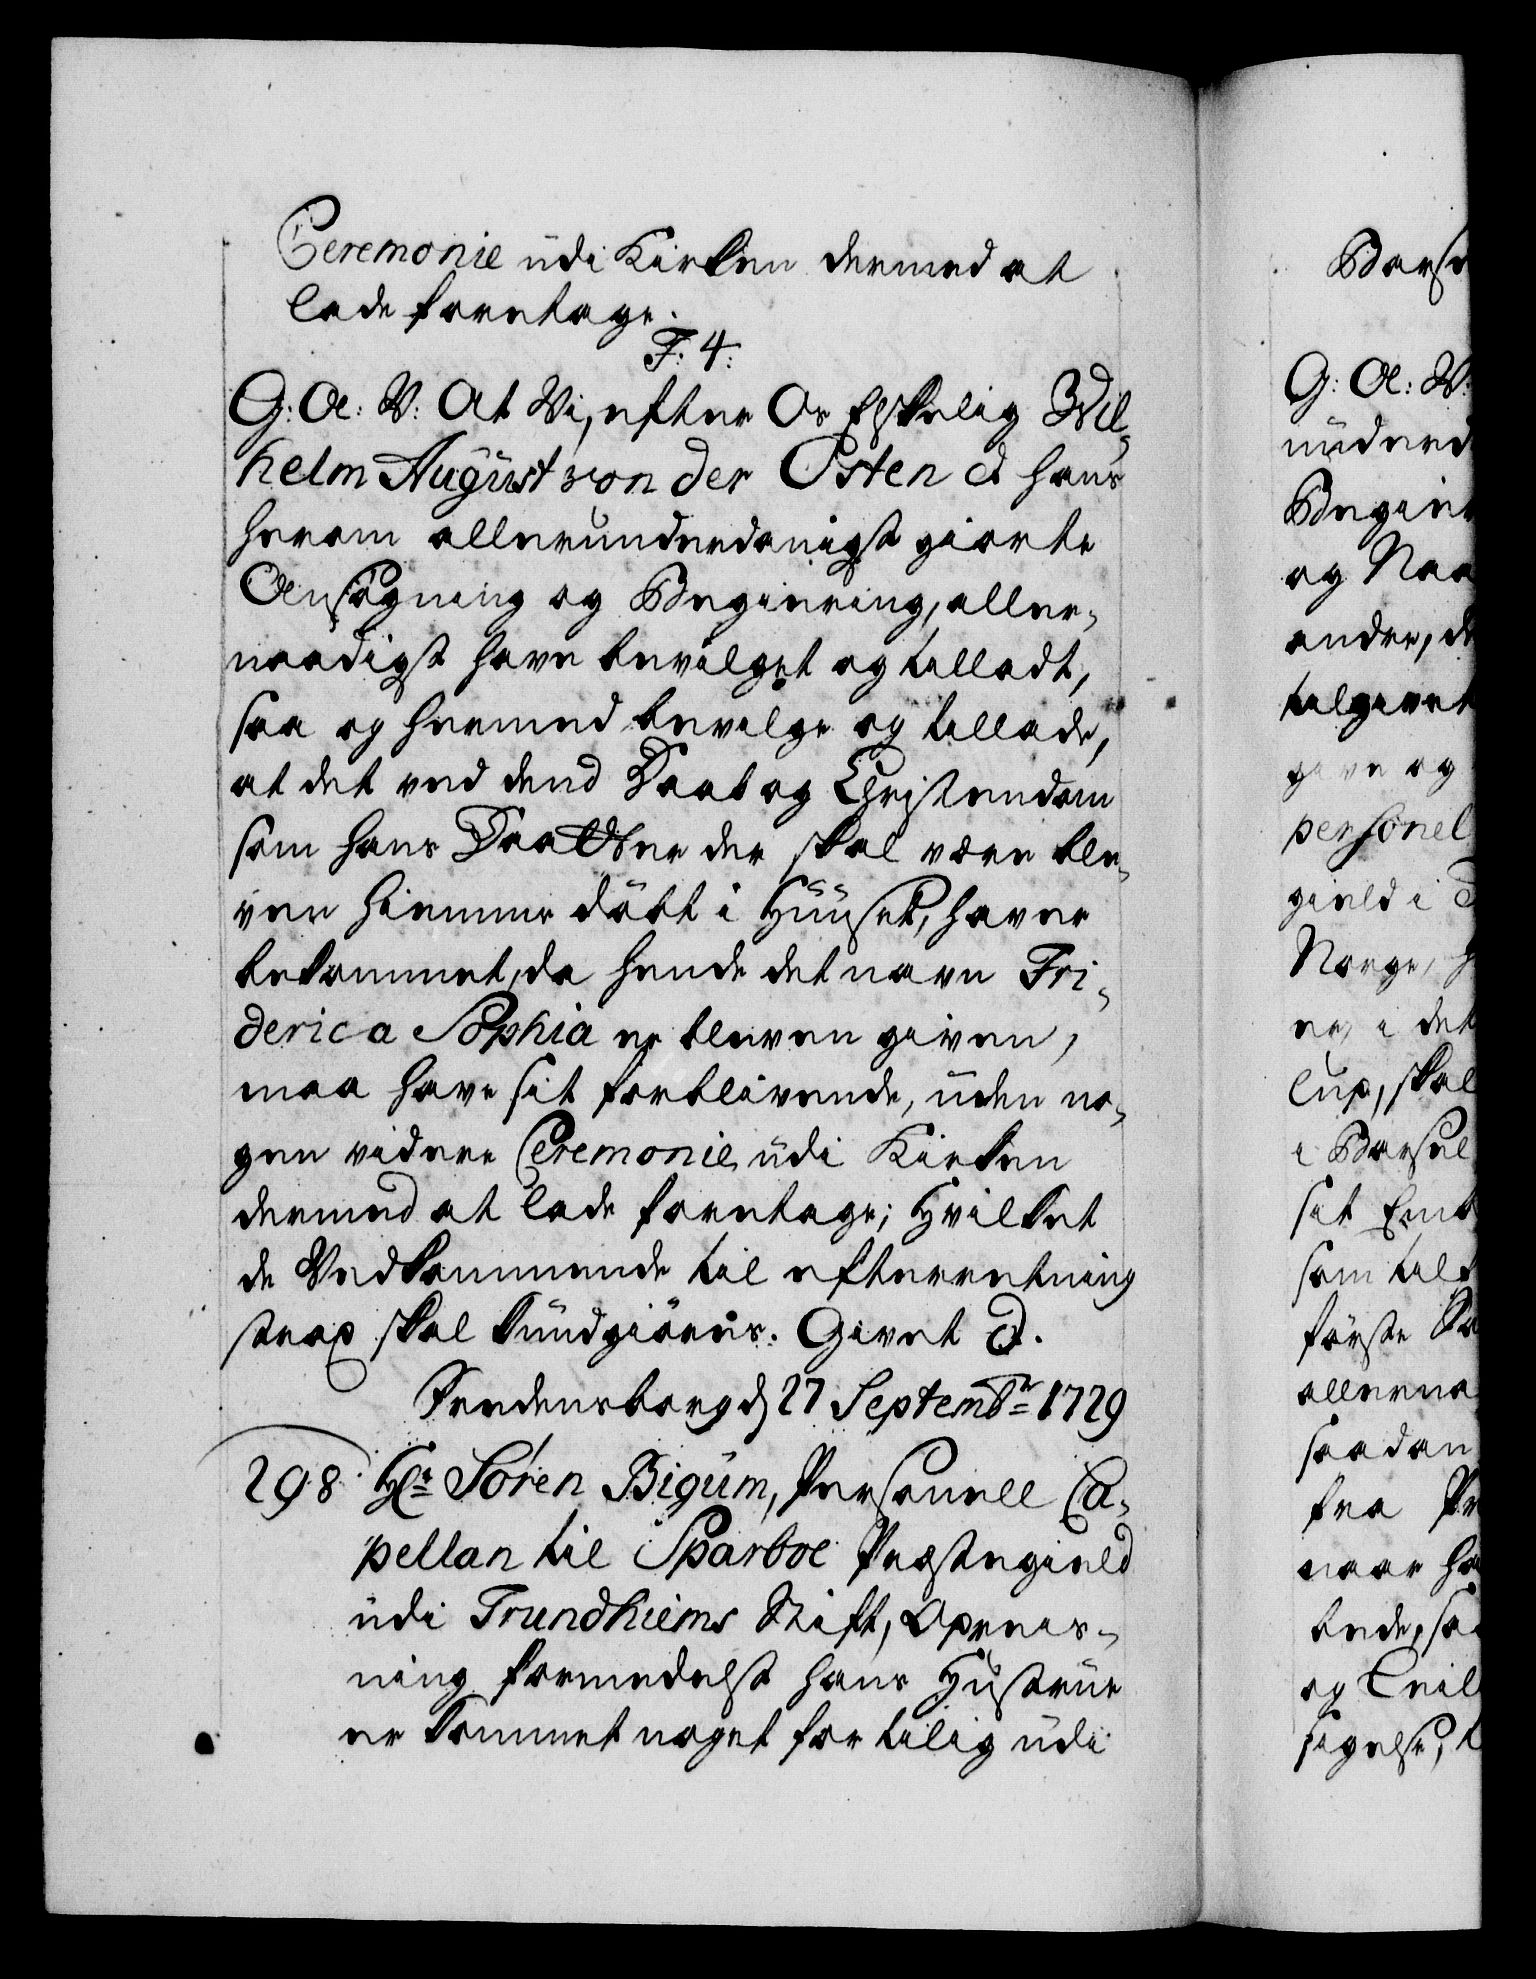 Ceremonie udi Kirken dermed at
lade foretage.
F: 4:
G: A: V: At Vi, efter Os Elskelig Wil-
helm August von der Osten &c hans
herom allerunderdanigst giorte
Ansøgning og Begiering, aller-
naadigst have bevilget og tilladt,
saa og hermed bevilge og tillade,
at det ved dend Daab og Christendom
som hans Daatter der skal være ble-
ven hiemme døbt i Huuset, haver
bekommet, da hende det navn Fri-
derica Sophia er bleven given,
maa have sit forblivende, uden no-
gen videre Ceremonie udi Kirken
dermed at lade foretage; Hvilket
de Vedkommende til efterretning
strax skal kundgiøres. Givet &c.
Fredensborg d 27 Septembr 1729
298. Hr Søren Bigum, Personell Ca-
pellan til Sparboe Præstegield
udi Trundhiems Stift, Opreis-
ning formedelst hans Hustrue
er kommet noget for tilig udi
Barse
G: A: V:
underd
Begier
og Naa
andre, de
tilgivet
give og
personel
gield i
Norge, h
er, i det
lup, skal
i Barsel
sit Emb
som tilf
første
allerna
saadan
fra Pr
naar ha
bede, saa
og
sigelse, t